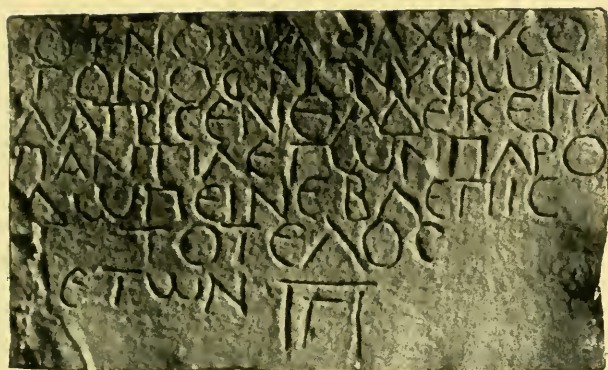 ΧΡΥCΟ
ΓΟΝΟC ΝΥΦΩΝ
ΛΑΤΡΙCΕΝΘΑΔΕΚΕΙΤΑ
ΠΑΝΤΙΛΕΓΩΝΠΑΡΟ
ΔΩΠΕΙΝΕΒΛΕΠΙC
ΤΟΤΕΛΟC
ΕΤΩΝ ΠΓ